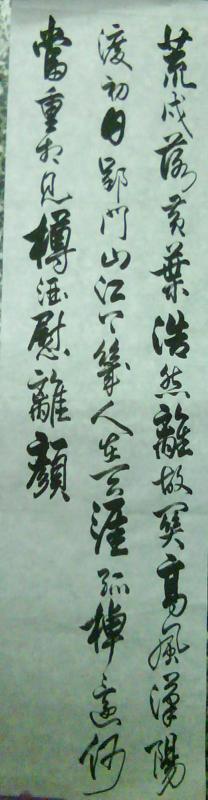 荒戍落黃葉浩然離故關高風漢陽
渡初日郢門山江上幾人在天涯孤棹還何
當重相見樽酒慰離顏